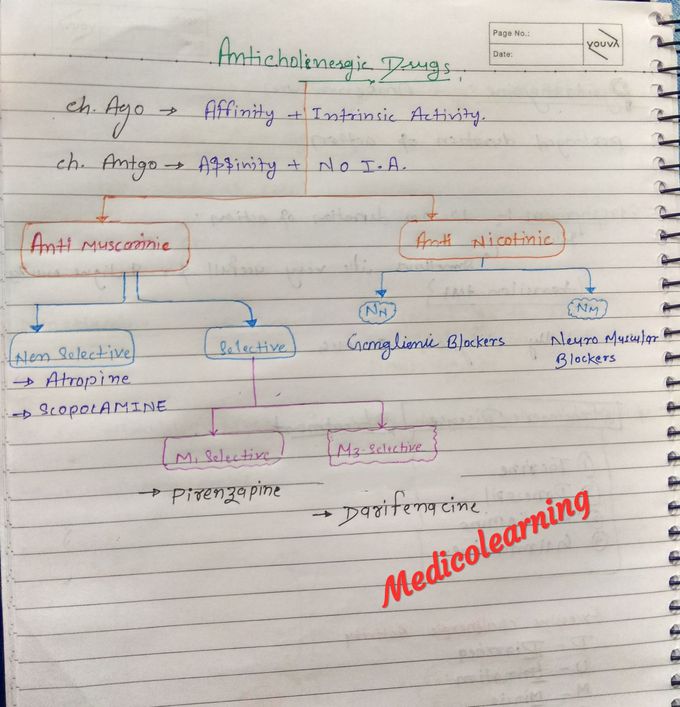 Page No.:
Date:
youva
Anticholinergic Drugs.
Ch. Ago → Affinity + Intrinsic Activity.
Ch. Antgo → Affinity + No I.A.
Anti Muscarinic
Anti Nicotinic
NN
NM
Non Selective
Selective
Ganglionic Blockers
Neuro Muscular
Blockers
→ Atropine
→ SCOPOLAMINE
M1 Selective
M3-Selective
→ Pirenzapine
→ Darifenacine
Medicolearning